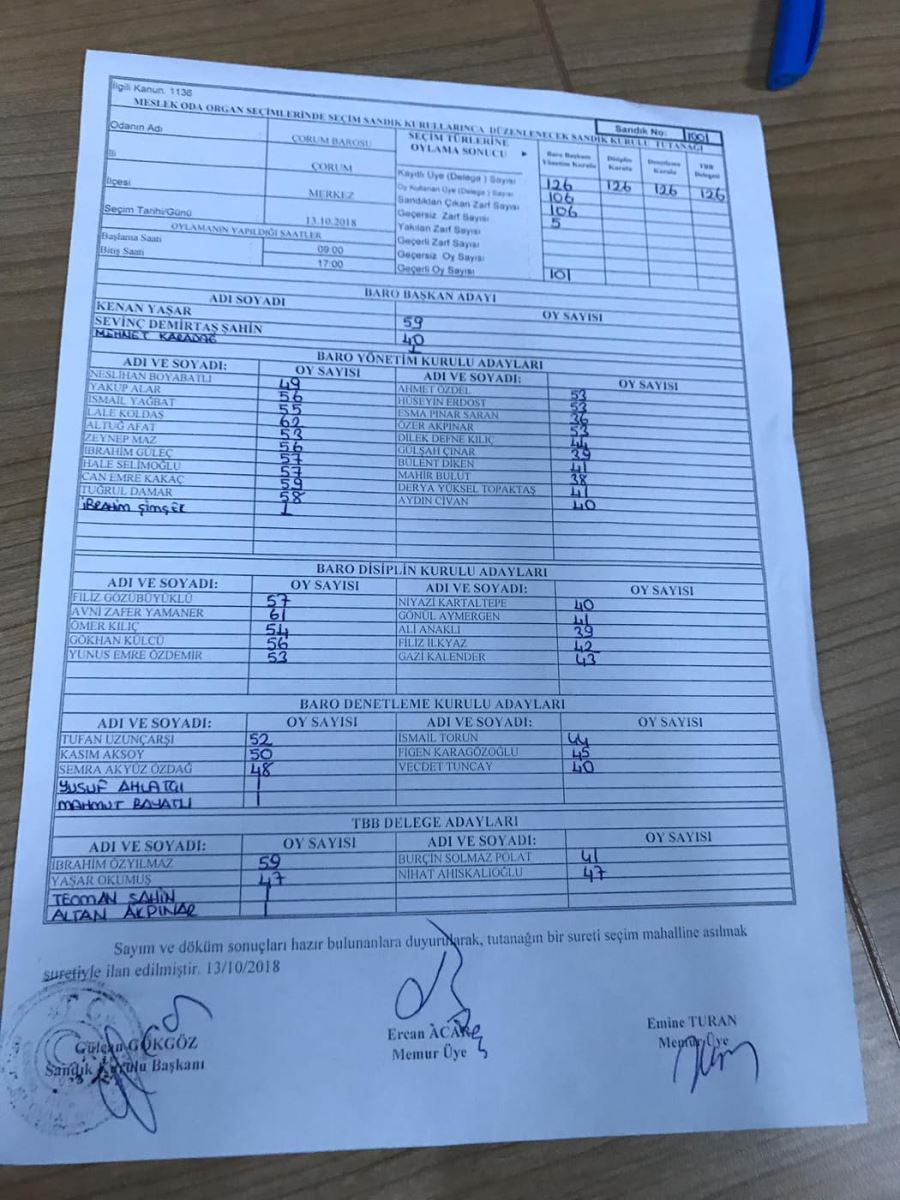 İlgili Kanun: 1136
MESLEK ODA ORGAN SEÇİMLERİNDE SEÇİM SANDIK KURULLARINCA DÜZENLENECEK SANDIK KURULU TUTANAĞI
Sandık No: 1001
Odanın Adı ÇORUM BAROSU SEÇİM TÜRLERİNE OYLAMA SONUCU Baro Başkan Yönetim Kurulu Disiplin Kurulu Denetleme Kurulu TBB Delegesi
İli ÇORUM Kayıtlı Üye (Delege) Sayısı 126 126 126 126
Oy Kullanan Üye (Delege) Sayısı 106
İlçesi MERKEZ Sandıktan Çıkan Zarf Sayısı 106
Geçersiz Zarf Sayısı 5
Seçim Tarihi/Günü 13.10.2018 Yakılan Zarf Sayısı
OYLAMANIN YAPILDIĞI SAATLER Geçerli Zarf Sayısı
Başlama Saati 09:00 Geçersiz Oy Sayısı
Bitiş Saati 17:00 Geçerli Oy Sayısı 101
BARO BAŞKAN ADAYI
ADI SOYADI OY SAYISI
KENAN YAŞAR 59
SEVİNÇ DEMİRTAŞ ŞAHİN 40
MEHMET KARADAĞ 1
BARO YÖNETİM KURULU ADAYLARI
ADI VE SOYADI: OY SAYISI ADI VE SOYADI: OY SAYISI
NESLİHAN BOYABATLI 49 AHMET ÖZDEL 53
YAKUP ALAR 56 HÜSEYİN ERDOST 53
İSMAİL YAĞBAT 55 ESMA PINAR SARAN 36
LALE KOLDAŞ 62 ÖZER AKPINAR 53
ALTUĞ AFAT 53 DİLEK DEFNE KILIÇ 44
ZEYNEP MAZ 56 GÜLŞAH ÇINAR 39
İBRAHİM GÜLEÇ 57 BÜLENT DİKEN 41
HALE SELİMOĞLU 57 MAHİR BULUT 38
CAN EMRE KAKAÇ 59 DERYA YÜKSEL TOPAKTAŞ 41
TUĞRUL DAMAR 58 AYDIN CİVAN 40
İBRAHİM ŞİMŞEK 1
BARO DİSİPLİN KURULU ADAYLARI
ADI VE SOYADI: OY SAYISI ADI VE SOYADI: OY SAYISI
FİLİZ GÖZÜBÜYÜKLÜ 57 NİYAZİ KARTALTEPE 40
AVNİ ZAFER YAMANER 61 GÖNÜL AYMERGEN 41
ÖMER KILIÇ 54 ALİ ANAKLI 39
GÖKHAN KÜLCÜ 56 FİLİZ İLKYAZ 42
YUNUS EMRE ÖZDEMİR 53 GAZİ KALENDER 43
BARO DENETLEME KURULU ADAYLARI
ADI VE SOYADI: OY SAYISI ADI VE SOYADI: OY SAYISI
TUFAN UZUNÇARŞI 52 İSMAİL TORUN 44
KASIM AKSOY 50 FİGEN KARAGÖZOĞLU 45
SEMRA AKYÜZ ÖZDAĞ 48 VECDET TUNCAY 40
YUSUF AHLATCI 1
MAHMUT BAYATLI 1
TBB DELEGE ADAYLARI
ADI VE SOYADI: OY SAYISI ADI VE SOYADI: OY SAYISI
İBRAHİM ÖZYILMAZ 59 BURÇİN SOLMAZ POLAT 41
YAŞAR OKUMUŞ 47 NİHAT AHISKALIOĞLU 47
TEOMAN ŞAHİN 1
ALTAN AKPINAR 1
Sayım ve döküm sonuçları hazır bulunanlara duyurularak, tutanağın bir sureti seçim mahalline asılmak
suretiyle ilan edilmiştir. 13/10/2018
Gülcan GÖKGÖZ Ercan ACAR Emine TURAN
Sandık Kurulu Başkanı Memur Üye Memur Üye